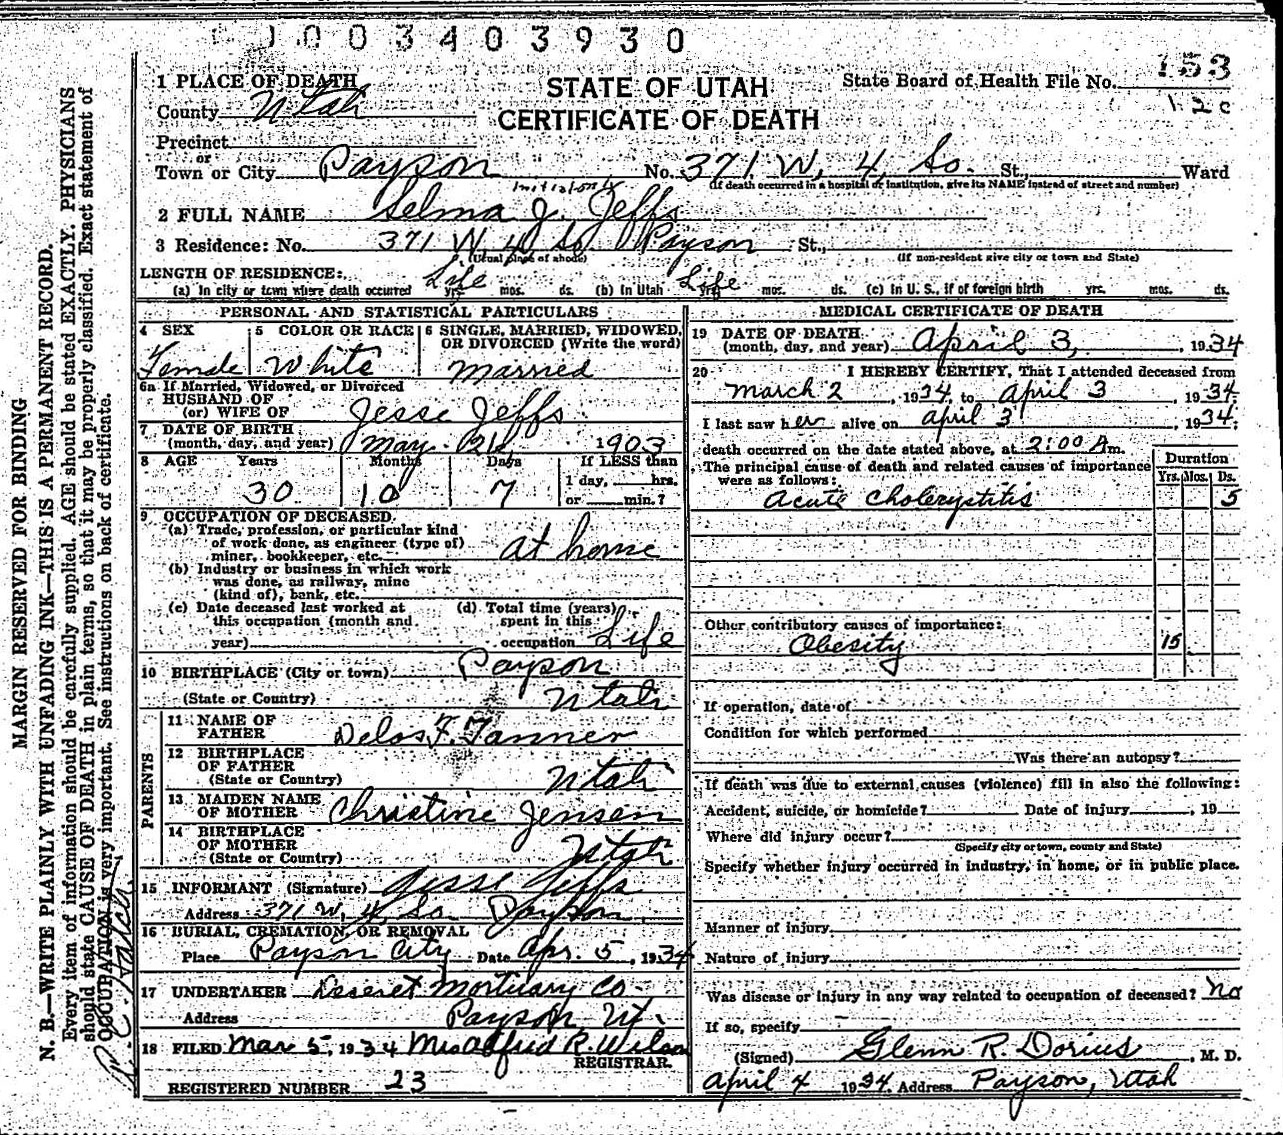 1003403930
1 PLACE OF DEATH
STATE OF UTAH
State Board of Health File No. 153
County Utah
CERTIFICATE OF DEATH
Precinct
or
Town or City Payson No. 371 W. 4 So. St., Ward
(If death occurred in a hospital or institution, give its NAME instead of street and number)
initial only
2 FULL NAME Selma J. Jeffs
3 Residence: No. 371 W. 4 So Payson St.,
(Usual place of abode) (If non-resident give city or town and State)
LENGTH OF RESIDENCE:
(a) In city or town where death occurred Life yrs. mos. ds. (b) In Utah Life yrs. mos. ds. (c) In U. S., if of foreign birth yrs. mos. ds.
PERSONAL AND STATISTICAL PARTICULARS
4 SEX 5 COLOR OR RACE 6 SINGLE, MARRIED, WIDOWED, OR DIVORCED (Write the word)
Female White Married
6a If Married, Widowed, or Divorced
HUSBAND OF
(or) WIFE OF Jesse Jeffs
7 DATE OF BIRTH
(month, day, and year) May 1903
8 AGE Years Months Days If LESS than
1 day, hrs.
30 10 7 or min.?
9 OCCUPATION OF DECEASED
(a) Trade, profession, or particular kind
of work done, as engineer (type of)
miner, bookkeeper, etc. At home
(b) Industry or business in which work
was done, as railway, mine
(kind of), bank, etc.
(c) Date deceased last worked at
this occupation (month and
year)
(d) Total time (years)
spent in this
occupation Life
10 BIRTHPLACE (City or town) Payson
(State or Country) Utah
PARENTS
11 NAME OF
FATHER Delos F. Tanner
12 BIRTHPLACE
OF FATHER
(State or Country) Utah
13 MAIDEN NAME
OF MOTHER Christine Jensen
14 BIRTHPLACE
OF MOTHER
(State or Country) Utah
15 INFORMANT (Signature) Jesse Jeffs
Address 371 W. 4 So. Payson.
16 BURIAL, CREMATION, OR REMOVAL
Place Payson City Date Apr. 5, 1934
17 UNDERTAKER Deseret Mortuary Co.
Address Payson Ut.
18 FILED Mar 5, 1934 Mrs Alfred R. Wilson
REGISTRAR.
REGISTERED NUMBER 23
MEDICAL CERTIFICATE OF DEATH
19 DATE OF DEATH
(month, day, and year) April 3, 1934
20 I HEREBY CERTIFY, That I attended deceased from
March 2, 1934, to April 3, 1934.
I last saw her alive on April 3, 1934;
death occurred on the date stated above, at 2:00 A m.
The principal cause of death and related causes of importance
were as follows:
Duration
Yrs. Mos. Ds.
Acute Cholecystitis 5
Other contributory causes of importance:
Obesity 15
If operation, date of
Condition for which performed
Was there an autopsy?
If death was due to external causes (violence) fill in also the following:
Accident, suicide, or homicide? Date of injury, 19
Where did injury occur?
(Specify city or town, county and State)
Specify whether injury occurred in industry, in home, or in public place.
Manner of injury
Nature of injury
Was disease or injury in any way related to occupation of deceased? No
If so, specify
(Signed) Glenn R. Dorius, M. D.
April 4 1934 Address Payson, Utah
MARGIN RESERVED FOR BINDING
N. B.—WRITE PLAINLY WITH UNFADING INK—THIS IS A PERMANENT RECORD.
Every item of information should be carefully supplied. AGE should be stated EXACTLY. PHYSICIANS
should state CAUSE OF DEATH in plain terms, so that it may be properly classified. Exact statement of
OCCUPATION is very important. See instructions on back of certificate.